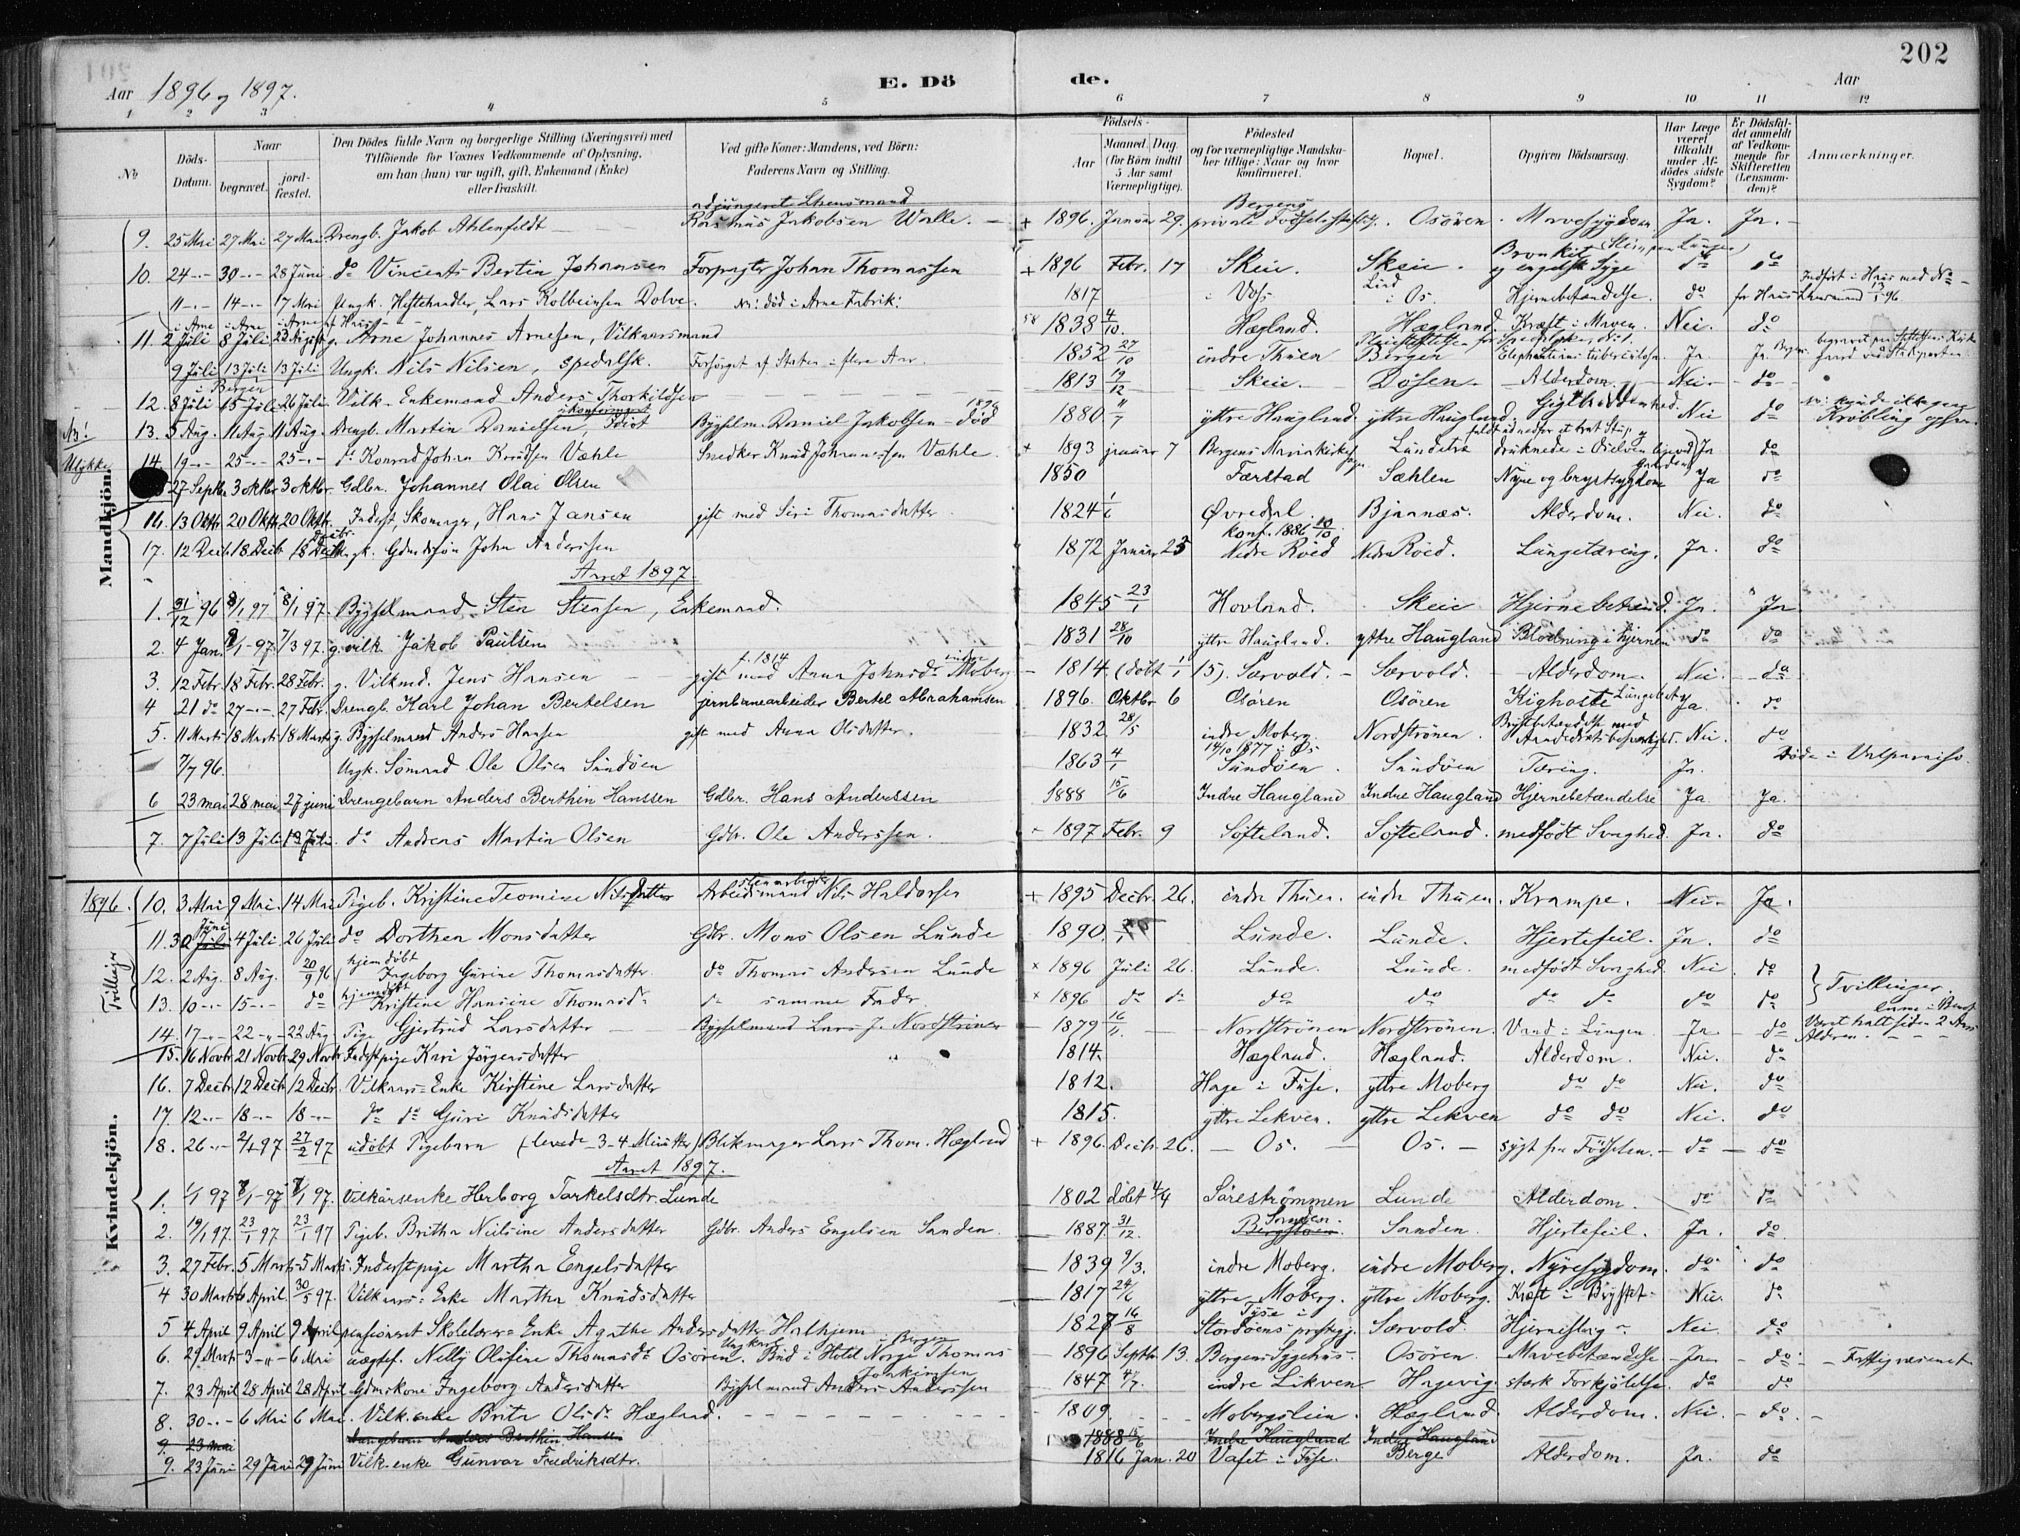 202
Aar 1896 og 1897. E. Döde. Aar
1 2 3 4 5 6 7 8 9 10 11 12
No
Döds-Datum.
Naar
begravet.
jord-fæstet.
Den Dödes fulde Navn og borgerlige Stilling (Næringsvei) med
Tilföiende for Voxnes Vedkommende af Oplysning,
om han (hun) var ugift, gift, Enkemand (Enke)
eller fraskilt.
Ved gifte Koner: Mandens, ved Börn:
Faderens Navn og Stilling.
Födsels-
Aar
Maaned. Dag.
(for Börn indtil
5 Aar samt
Værnepligtige).
Födested
og for værnepligtige Mandska-
ber tillige: Naar og hvor
konfirmeret.
Bopæl.
Opgiven Dödsaarsag.
Har Læge
været
tilkaldt
under Af-
dödes sidste
Sygdom?
Er Dödsfal-
det anmeldt
af Vedkom-
mende for
Skifteretten
(Lensman-
den)?
Anmærkninger.
Mandkjön.
9. 25 Mai 27 Mai 27 Mai Drengb. Jakob Ahlenfeldt adjungeret Lhensmand Rasmus Jakobsen Walle. + 1896. Januar 29. Bergens private Födselsstiftelse Osören. Mavesygdom Ja. Ja.
10. 24 30 28 Juni do Vincents Bertin Johansen Forpagter Johan Thomassen + 1896 Febr. 17 Skeie. Skeie. Bronkit og engelsk Syge do do
11 14 17 Mai Ungk. Heftehandler, Lars Kolbeinsen Dolve. No: död i Arne Fabrik: 1817 i Vos. i Os. Hjernebetændelse. do for Haus Lhensmand
i Arne i Arne i Arne af Haus
11. 2 Juli 8 Juli 23 August g. Arne Johannes Arnesen, Vilkaarsmand 1838 4/10. Hægland. Hægland. Kræft i Maven. Nei. do
9 Juli 13 Juli 13 Juli Ungk. Nils Nilsen, spedalsk. Forsörget af Staten i flere Aar. 1852 27/10 indre Thuen Bergen Ja Ja
i Bergen
12. 8 Juli 15 Juli 26 Juli. Vilk. Enkemand Anders Thorkildsen 1813 19/12 Skeie. Dösen Alderdom. Nei. do
No! 13. 5 Aug. 11 Aug 11 Aug. Drengb. Martin Danielsen, Idiot Bygselm. Daniel Jakobsen död 1880 4/7 yttre Haugland. yttre Haugland. Nei do Kröbling
Ulykke 14. 19 25 25 do Konrad Johan Knudsen Væhle Snedker Knud Johannessen Væhle. × 1893 januar 7 Bergens Mariakirke Lundetræ druknede i Oselven Ja do
27 Septbr 3 oktbr 3 oktbr Gdbr. Johannes Olai Olsen 1850 Færstad Sæhlen Nyre og brystsygdom Ja do
16. 13 Oktbr 20 Oktbr 20 Oktbr. Inderst Skomager, Hans Jansen gift med Siri Thomasdatter. 1824 1/6 Øvredal. Bjaanæs. Alderdom. Nei. do
17. 12 Decb. 18 Decb. 18 Decb. Ungk. Gdmdssön John Anderssen 1872 Januar 25 konf. 1886 10/10 Nedre Röed Nedre Röed. Lungetæring. Ja. do
Aaret 1897.
1. 31/12 96 8/1 97 8/1 97. Bygselmand Sten Stensen, Enkemand. 1845 23/1 Hovland. Skeie Hjernebetænd. Ja. Ja
2. 4 Jan. 8/1-97. 7/3 97. g. vilk. Jakob Paulsen 1831 28/10 yttre Haugland. yttre Haugland Blodning i hjernen do do
3. 12 Febr. 18 Febr. 28 Febr. g. Vilkmd. Jens Hansen gift med Anna Johnsdr indre Moberg 1814 (döbt 1/1 15). Særvold. Særvold. Alderdom. Nei. do
4 21 do 27 27 Febr. Drengb. Karl Johan Bertelsen jernbanearbeider Bertel Abrahamsen 1896. Oktbr 6 Osören Osören Kighoste Lungebet Ja. do
5. 11 Marts 18 Marts 18 Marts g. Bygselmand Anders Hansen gift med Anna Olsdatter. 1832. 28/5 indre Moberg. Nordströnen. Brystbetændelse med Aandedrætsbesværlighed. Nei. do
7/7 96. Ungk. Sömand Ole Olsen Sundöen 1863 4/1 14/10 1877 i Os Sundöen. Sundöen Tæring. Ja. Döde i Valparaiso
6 23 mai 28 mai 27 juni Drengebarn Anders Berthin Hanssen Gdbr. Hans Anderssen 1888 15/6 Indre Haugland Indre Haugland Hjernebetændelse Ja Ja.
7. 7 Juli 13 Juli 13 Juli. do Andreas Martin Olsen Gdbr. Ole Anderssen. 1897 Febr. 9 Söfteland. Söfteland. medfödt Svaghed. Ja. do
Kvindekjön.
1896 10. 3 Mai 9 Mai. 14 Mai Pigeb. Kristine Teomine Nilsdatter stenarbeider Arbeidsmand Nils Haldorsen + 1895 Decbr. 26. indre Thuen. indre Thuen. Krampe. Nei. Ja.
11. 30 Juni 4 Juli 26 Juli do Dorthea Monsdatter Gdbr. Mons Olsen Lunde 1890. Lunde. Lunde. Hjertefeil. Ja. do
Tvillinger
12. 2 Aug. 8 Aug. 20/9 96 hjemdöbt Ingeborg Gurine Thomasdatter do Thomas Andersen Lunde × 1896 Juli 26. Lunde. Lunde. medfödt Svaghed. Nei. do Tvillinger.
13. 10 15 do hjemdöbt Kristine Hansine Thomasdr do samme Fader. × 1896 do do do do do do do do
14. 17 22 22 Aug. Pige Gjertrud Larsdatter Bygselmand Lars J. Nordströnen 1879 16/11. Nordströnen Nordströnen. Vand i Lungen. Ja do Været halt siden 2 Aars Alderen.
15. 16 Novbr. 21 Novbr. 29 Novbr. Inderstpige Kari Jörgensdatter 1814. Hægland. Hægland. Alderdom. Nei. do
16. 7 Decbr. 12 Decbr. 12 Decbr. Vilkaars-Enke Kirstine Larsdatter 1812. Hage i Fuse. yttre Moberg do do Nei. do
17. 12 18 18 do do Guri Knudsdatter 1815. yttre Lekven. yttre Lekven do do Nei. do
18. 26 2/1 97 27/2 97 udöbt Pigebarn (levede 3-4 Minutter) Blikmager Lars Thom. Hægland + 1896. Decbr. 26. Os. Os. sygt fra Födselen. do do
Aaret 1897.
1. 1/1 97 8/1-97 8/1 97. Vilkårsenke Herborg Torkelsdtr. Lunde 1802 döbt 4/4 Sörestrømmen Lunde Alderdom. do do
2. 19/1 97. 23/1 97 23/1 97 Pigeb. Britha Nilsine Andersdatter Gdbr. Anders Engelsen Sanden. 1887. 31/12. Sanden. Sanden. Hjertefeil. Ja. do
3. 27 Febr. 5 Marts 5 Marts. Inderstpige Martha Engelsdatter 1839 9/3. indre Moberg. indre Moberg. Nyresygdom. do do
4 30 Marts 6 April. 30/5 97. Vilkaars-Enke Martha Knudsdatter 1817 24/6 yttre Moberg. yttre Moberg. Kræft i Brystet. Nei. do
5 4 April 9 April 9 April pensioneret Skolelærer-Enke Agathe Andersdatter Halhjem 1827 16/8 Tyse i Stordöens prstgj. Særvold. Hjerneslag Nei. do
6. 29 Marts 3 6 Mai uægtef. Nelly Olufine Thomasdr Osören. Ungkarl Bud i Hotel Norge i Bergen Thomas Joakimsen 1896 Septbr. 13. Bergens Sygehus. Osören. Mavebetændelse Ja do Fattigvæsenet
7. 23 April 28 April 28 April Gdmskone Ingeborg Andersdatter Bygselmand Anders Anderssen 1847 4/7. indre Likven Hagevig. stærk Forkjölelse. do do
8. 30 6 Mai 6 Mai. Vilk.enke Brita Olsdr Hægland. 1809 Mobergslien. Hægland. Alderdom. Nei. do.
9. 23 mai Drengebarn Anders Berthin Hansen 1888 15/6 Indre Haugland Indre Haugland
9. 23 Juni 29 Juni 29 Juni Vilk.enke Gunvor Fredriksdtr. 1816 Jan. 20 Vafet i Fuse. Berge Alderdom. Ja. do